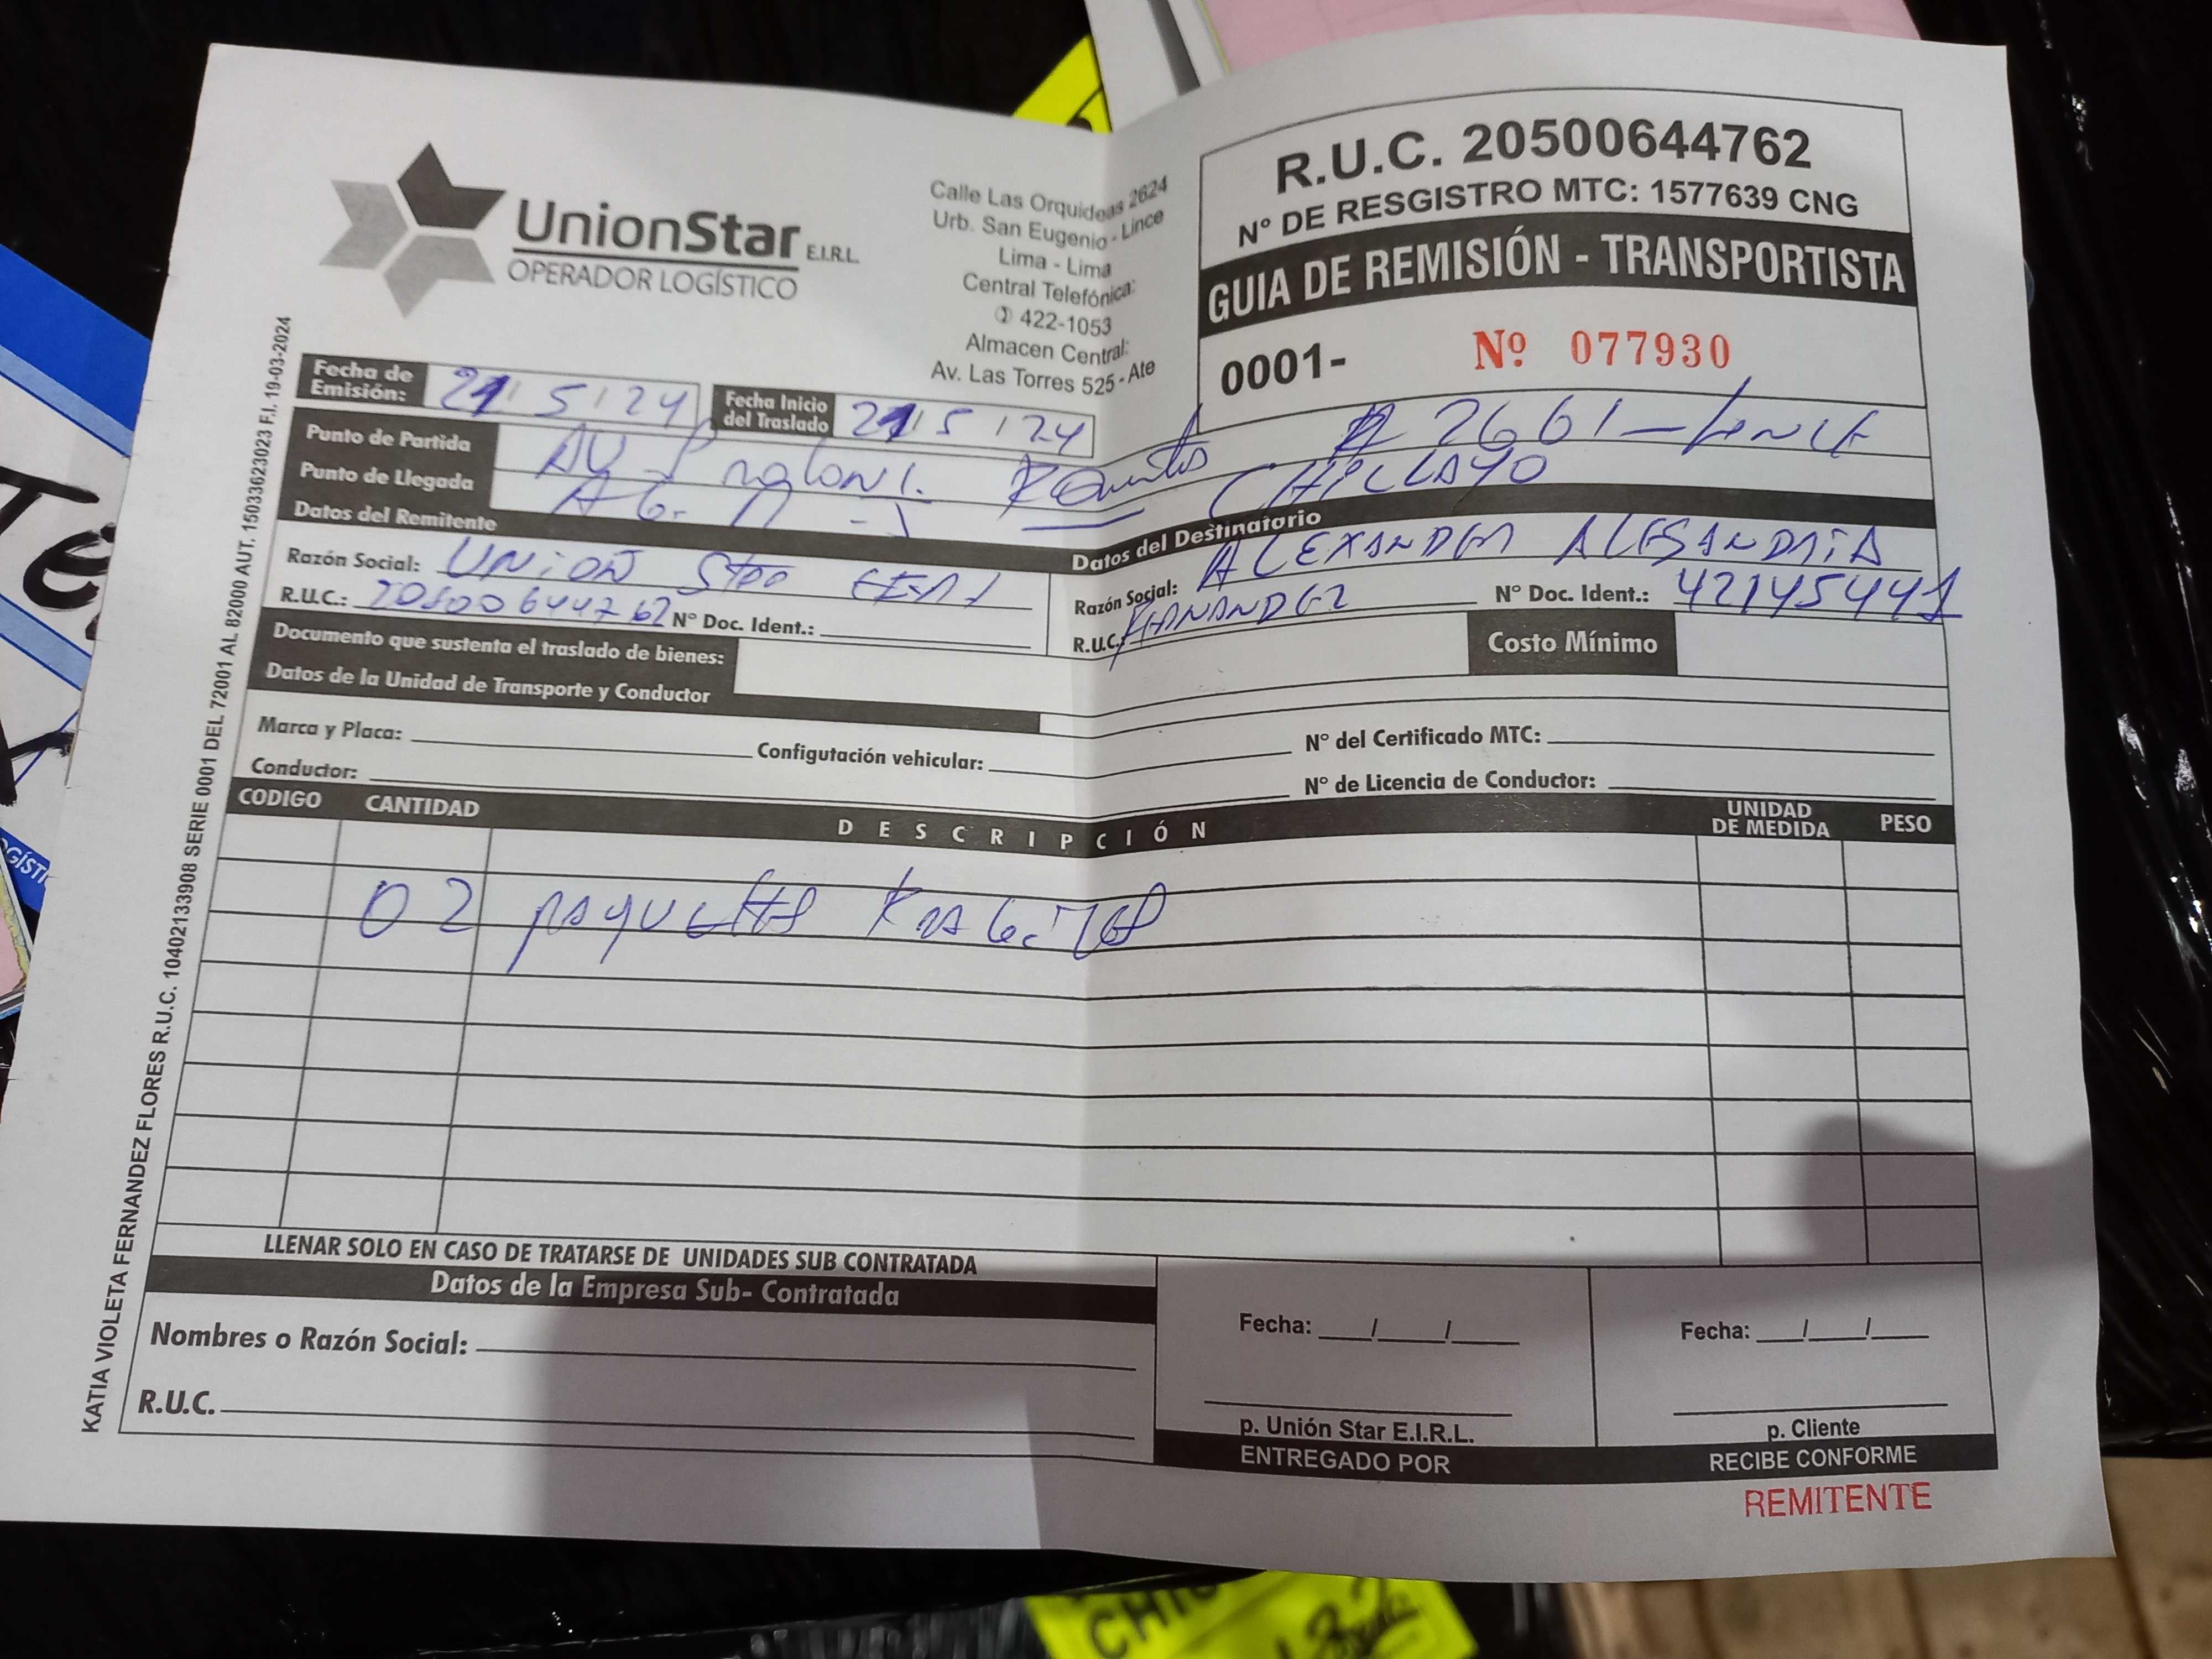 UnionStar E.I.R.L.
OPERADOR LOGÍSTICO
Calle Las Orquideas 2624
Urb. San Eugenio - Lince
Lima - Lima
Central Telefónica:
✆ 422-1053
Almacen Central:
Av. Las Torres 525 - Ate
R.U.C. 20500644762
N° DE RESGISTRO MTC: 1577639 CNG
GUIA DE REMISIÓN - TRANSPORTISTA
0001- Nº 077930
Fecha de Emisión: 21 5 24 Fecha Inicio del Traslado 21 5 24
Punto de Partida AV 2661 - Lince
Punto de Llegada CHICLAYO
Datos del Remitente
Razón Social: UNION
R.U.C.: 20500644762 N° Doc. Ident.:
Datos del Destinatario
Razón Social: ALEXANDER ALESANDRIA
FERNANDEZ
N° Doc. Ident.: 42145441
R.U.C.:
Costo Mínimo
Documento que sustenta el traslado de bienes:
Datos de la Unidad de Transporte y Conductor
Marca y Placa: Configutación vehicular: N° del Certificado MTC:
Conductor: N° de Licencia de Conductor:
CODIGO CANTIDAD DESCRIPCIÓN UNIDAD DE MEDIDA PESO
02 paquetes
LLENAR SOLO EN CASO DE TRATARSE DE UNIDADES SUB CONTRATADA
Datos de la Empresa Sub- Contratada
Nombres o Razón Social:
R.U.C.
Fecha: / /
p. Unión Star E.I.R.L.
ENTREGADO POR
Fecha: / /
p. Cliente
RECIBE CONFORME
REMITENTE
KATIA VIOLETA FERNANDEZ FLORES R.U.C. 10402133908 SERIE 0001 DEL 72001 AL 82000 AUT. 15033623023 F.I. 19-03-2024